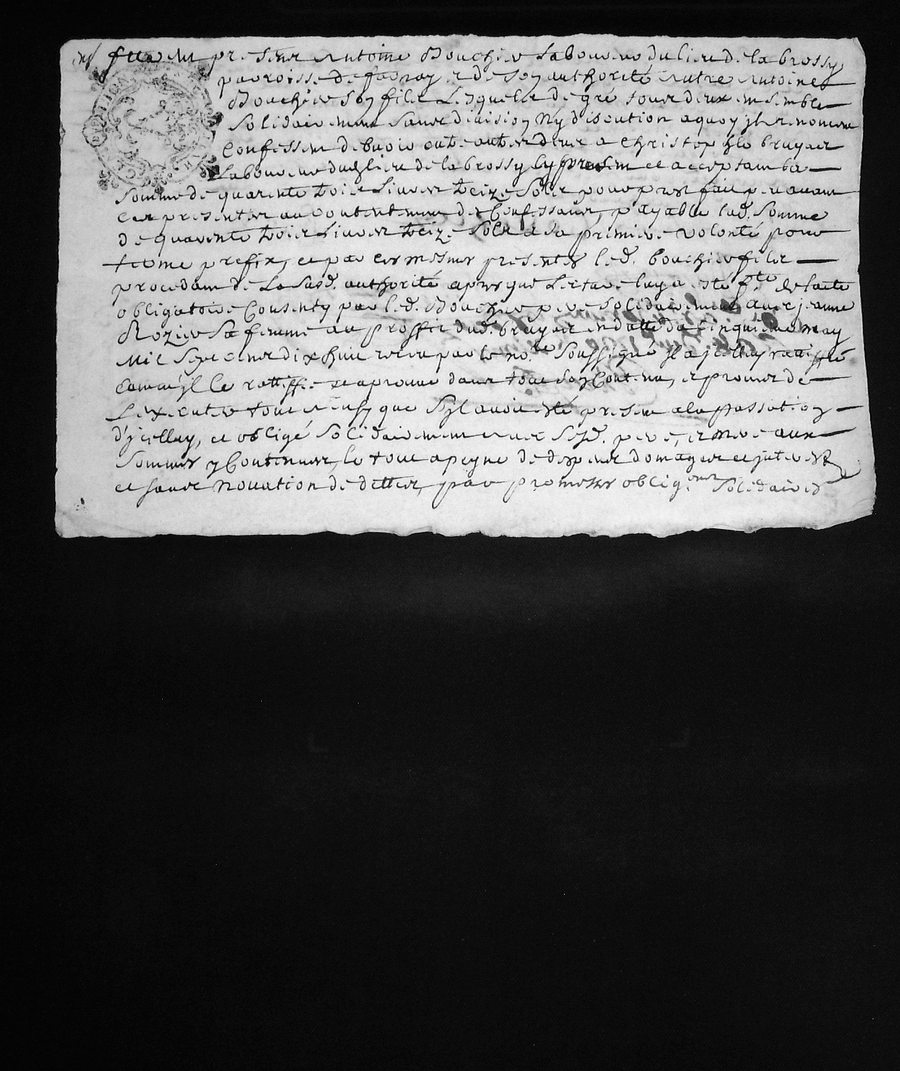 fut present Antoine Bouchier laboureur du lieu de la brossy
parroisse de et de son authorité autre Antoine
Bouchier son filz Lesquelz de gré tous deux ensemble
Solidairement sans division ny discution a quoy ilz renoncent
Confessent debvoir a Christophle bruyas
Laboureur dudit lieu de la brossy Cy present et acceptant la
Somme de quarente trois Livres treize Solz pour prest fait par avant
Ces presentes au Contentement des Confessans, payable lad. Somme
de quarente trois Livres treize Solz a sa premiere volonté pour
terme prefix, et par ces mesmes presentes led. bouchier filz
procedant de La Susd. authorité apres que Lecture luy a esté fte de l'acte
obligatoire Consenty par led. Bouchier pere Solidairement avec jeanne
Rozier Sa femme au proffit dud. bruyas en datte du Cinquieme may
Mil Sept Cens dix huit receu par le nore Soussigné Il a jcelluy ratiffié
Comme Il le ratiffie et aprouve dans tout Son Contenu, et promet de
L'executer tout ainsy que S'yl avoit esté present a la passation
d'jcelluy, et obligé Solidairement avec Sesd. pere, et mere aux
Sommes y Contenues, le tout a peyne de despens domages et interestz
et sans Novation de dettes, par promesses obligons Solidaires